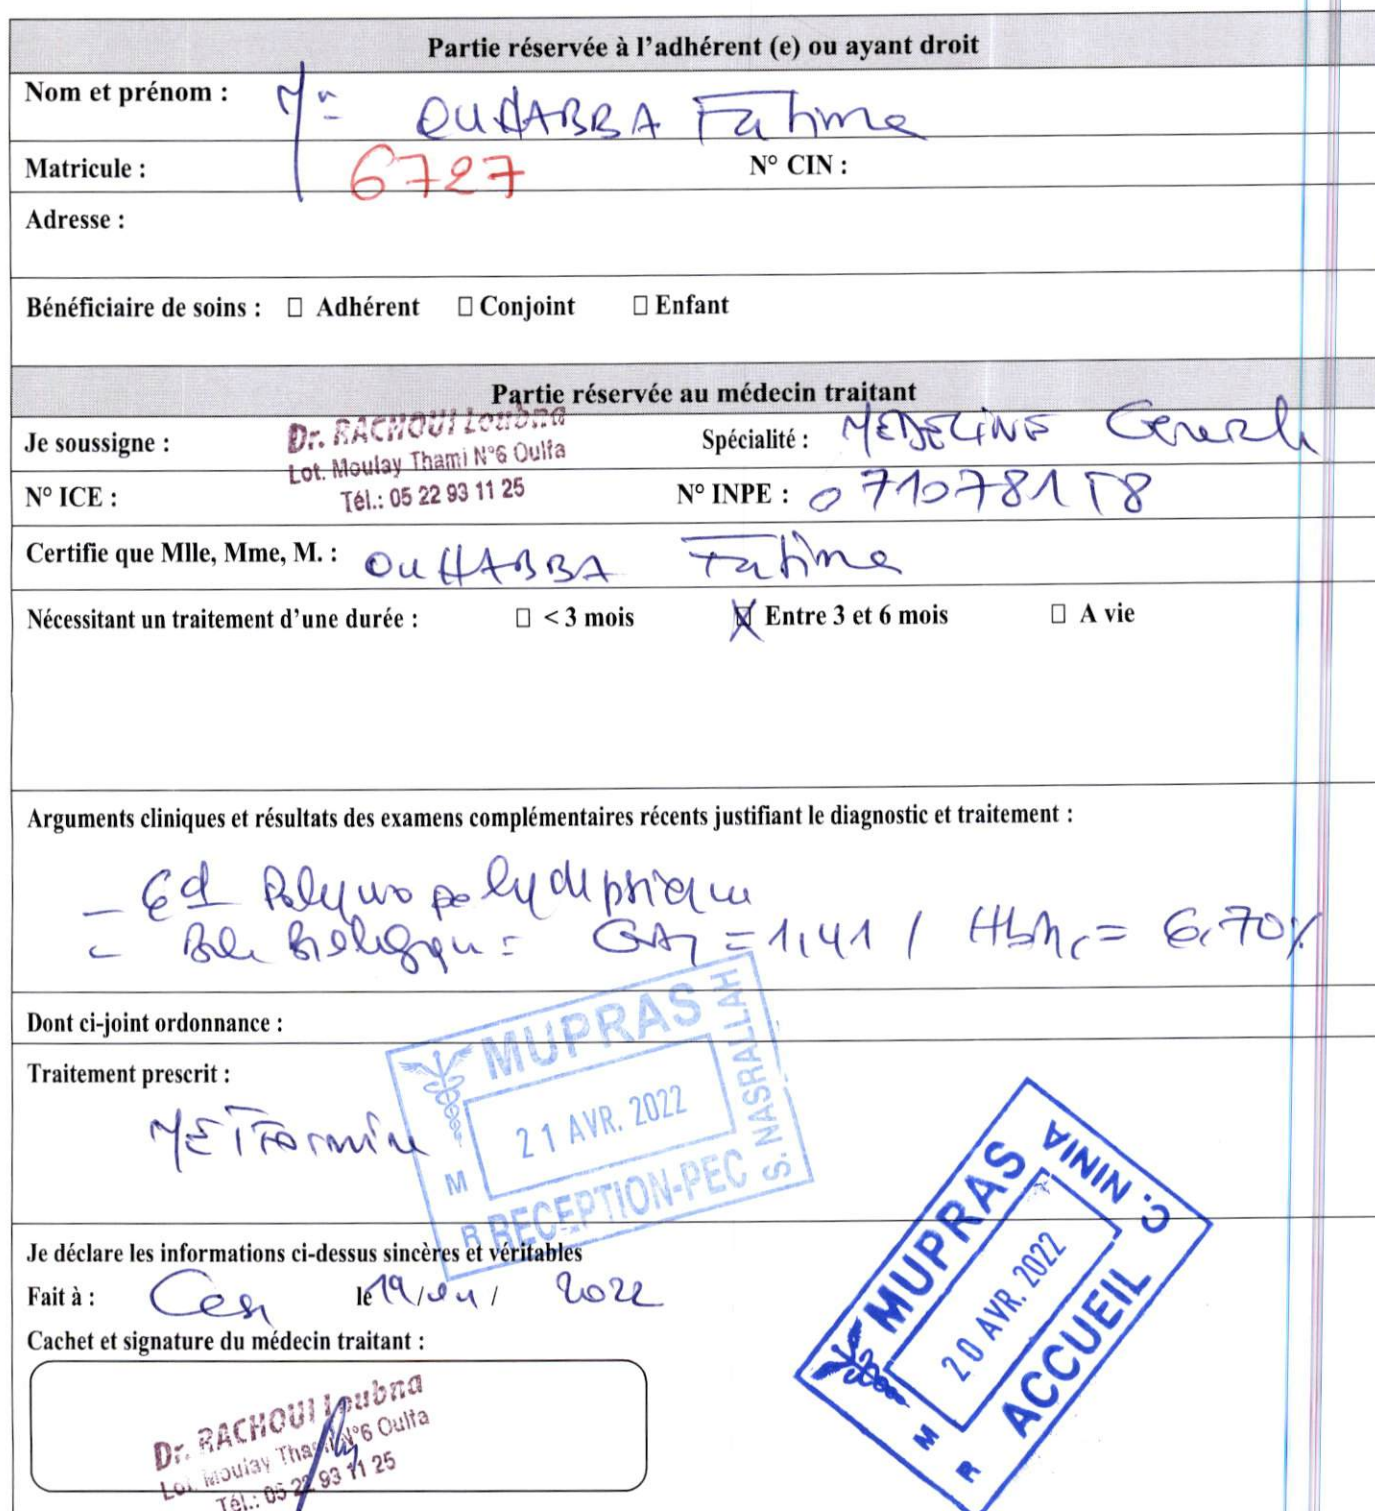 Partie réservée à l'adhérent (e) ou ayant droit
Nom et prénom : Mme OUHABBA Fatima
Matricule : 6727 N° CIN :
Adresse :
Bénéficiaire de soins : □ Adhérent □ Conjoint □ Enfant
Partie réservée au médecin traitant
Je soussigne : Dr. RACHOUI Loubna Spécialité : MEDECINE Generale
Lot. Moulay Thami N°6 Oulfa
N° ICE : Tél.: 05 22 93 11 25 N° INPE : 071078158
Certifie que Mlle, Mme, M. : OUHABBA Fatima
Nécessitant un traitement d'une durée : □ < 3 mois ☒ Entre 3 et 6 mois □ A vie
Arguments cliniques et résultats des examens complémentaires récents justifiant le diagnostic et traitement :
- Sd Polyuro polydipsique
- Biologique = GAJ = 1,41 / HbA1c = 6,70%
Dont ci-joint ordonnance :
Traitement prescrit :
METFormine
MUPRAS
21 AVR. 2022
S. NASRALLAH
M
R RECEPTION-PEC
MUPRAS
20 AVR. 2022
C. NINIA
M
R ACCUEIL
Je déclare les informations ci-dessus sincères et véritables
Fait à : Casa le 19/04/2022
Cachet et signature du médecin traitant :
Dr. RACHOUI Loubna
Lot. Moulay Thami N°6 Oulfa
Tél.: 05 22 93 11 25